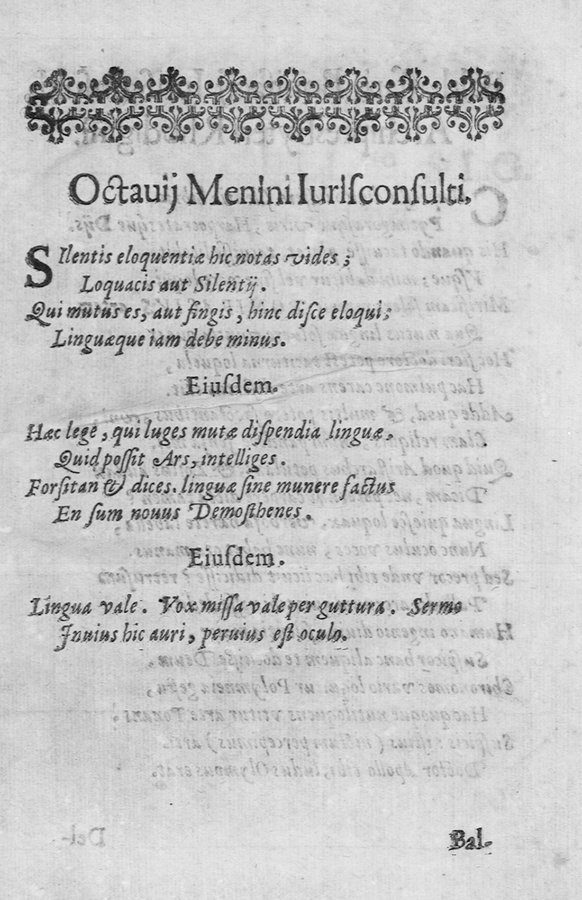 Octauij Menini Iurisconsulti.
SIlentis eloquentiæ hic notas vides;
Loquacis aut Silentij.
Qui mutus es, aut fingis, hinc disce eloqui;
Linguæque iam debe minus.
Eiusdem.
Hæc lege, qui luges mutæ dispendia linguæ,
Quid possit Ars, intelliges.
Forsitan & dices. linguæ sine munere factus
En sum nouus Demosthenes.
Eiusdem.
Lingua vale. Vox missa vale per guttura. Sermo
Inuius hic auri, peruius est oculo.
Bal-